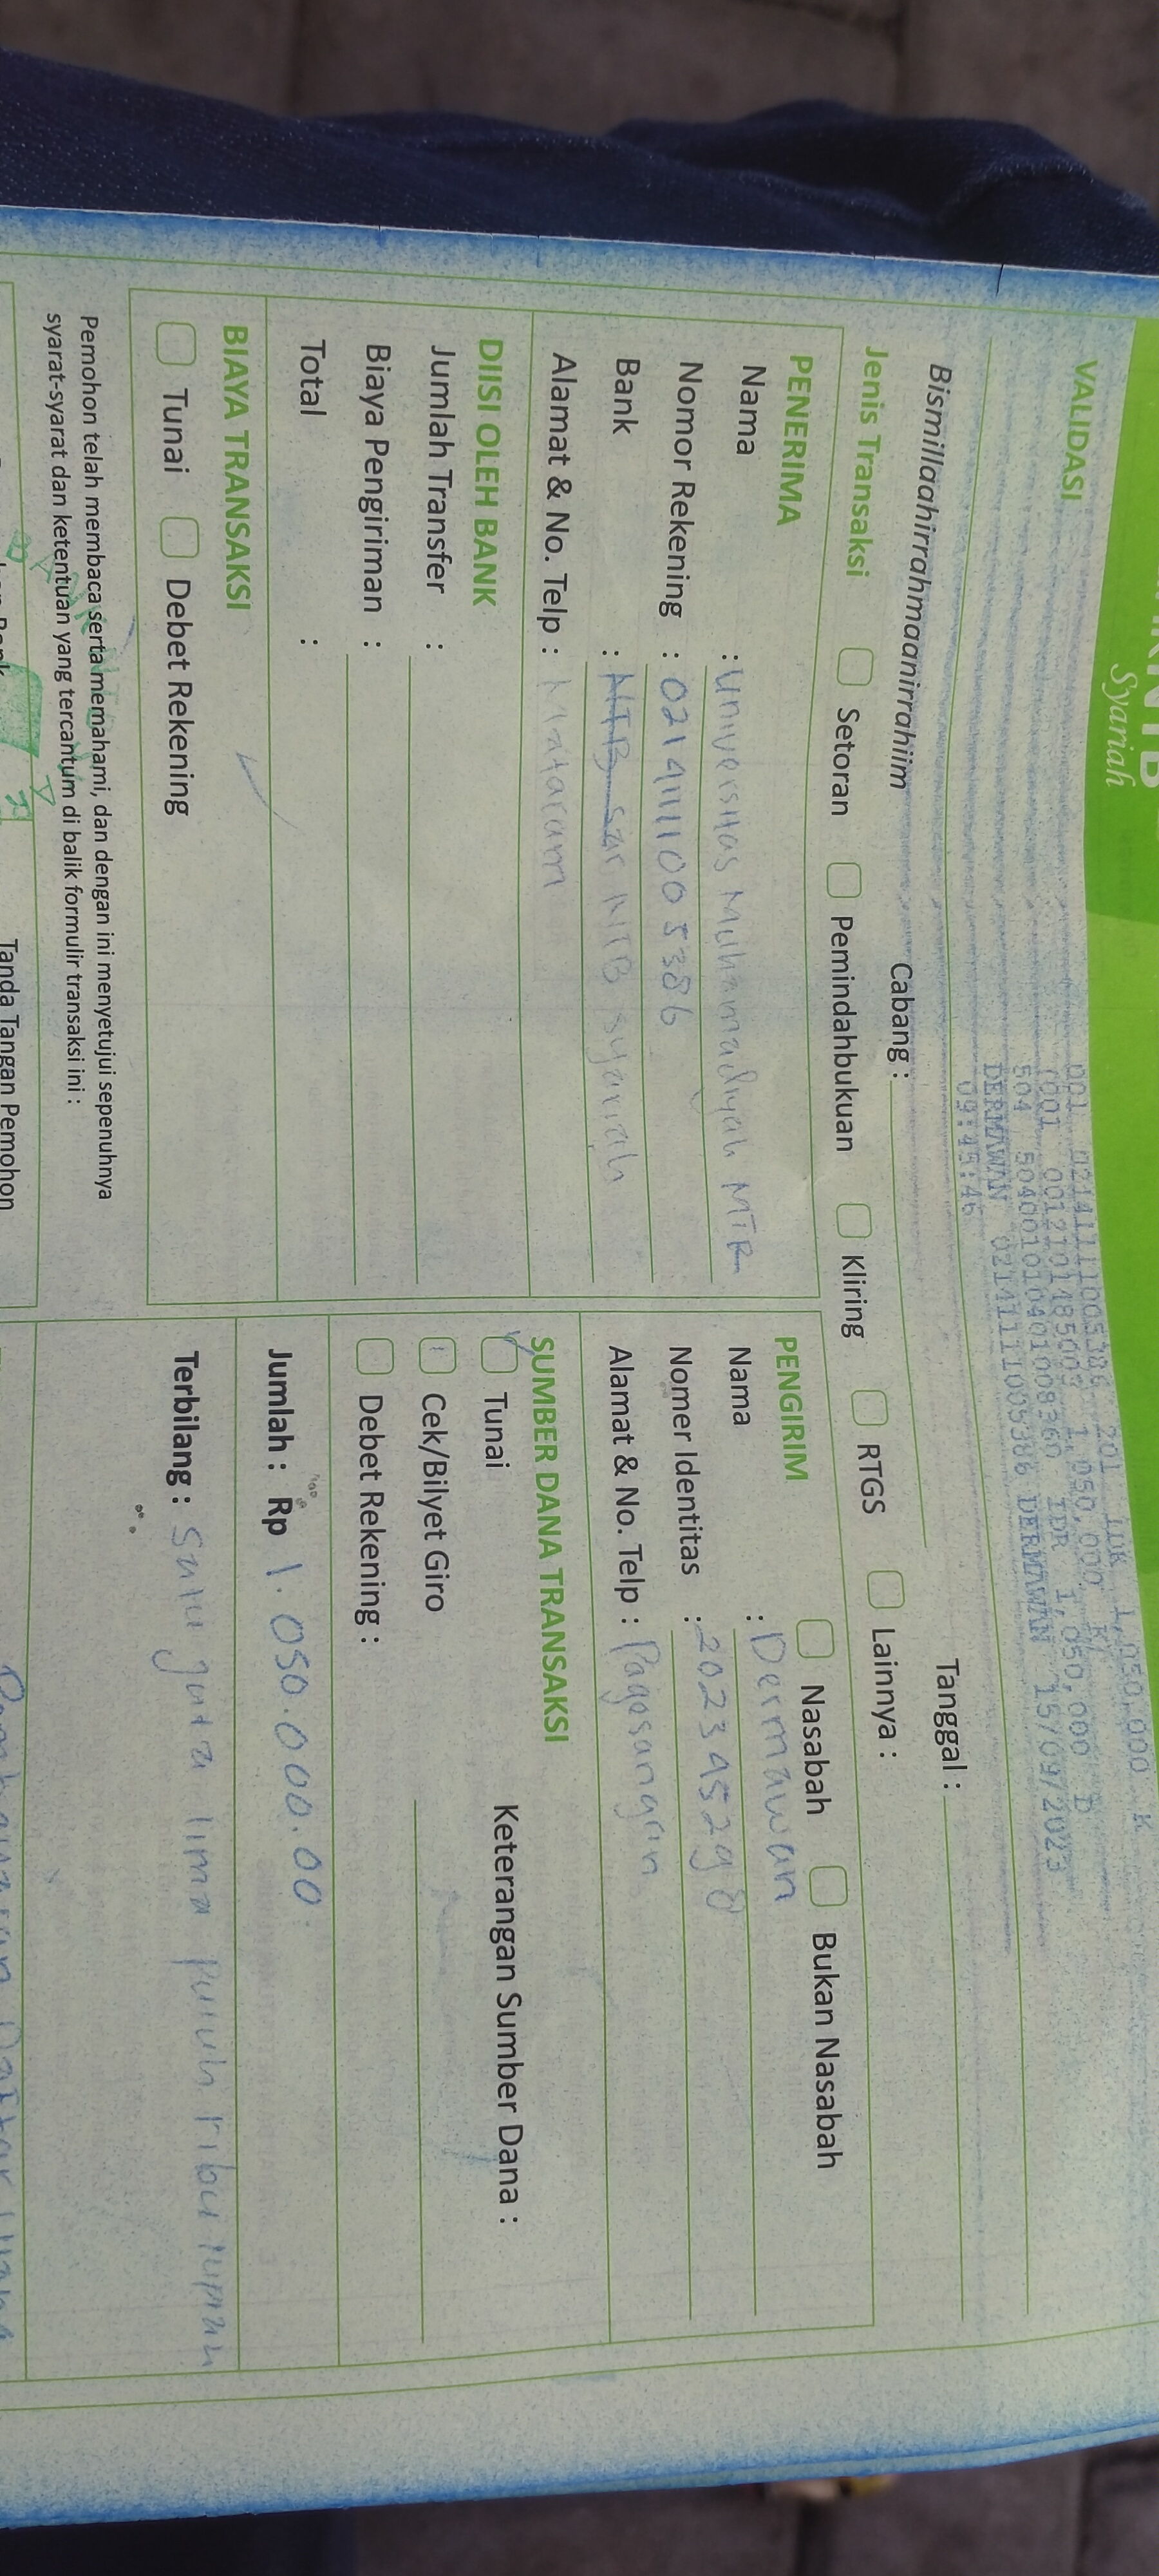 Syariah
VALIDASI
001 02141111005386 201 IDR 1,050,000 K
504 504001010401008360 IDR 1,050,000 D
DERMAWAN 02141111005386 DERMAWAN 15/09/2023
09:45:46
Bismillaahirrahmaanirrahiim
Cabang :
Tanggal :
Jenis Transaksi Setoran Pemindahbukuan Kliring RTGS Lainnya :
PENERIMA
Nama : Universitas Muhamadiyah MTR
Nomor Rekening : 02141111005386
Bank : NTB Syariah
Alamat & No. Telp : Mataram
DIISI OLEH BANK
Jumlah Transfer :
Biaya Pengiriman :
Total :
BIAYA TRANSAKSI
Tunai Debet Rekening
Pemohon telah membaca serta memahami, dan dengan ini menyetujui sepenuhnya
syarat-syarat dan ketentuan yang tercantum di balik formulir transaksi ini :
Tanda Tangan Pemohon
PENGIRIM Nasabah Bukan Nasabah
Nama : Dermawan
Nomer Identitas : 202345298
Alamat & No. Telp : Pagesangan
SUMBER DANA TRANSAKSI
Tunai Keterangan Sumber Dana :
Cek/Bilyet Giro
Debet Rekening :
Jumlah : Rp 1.050.000.00
Terbilang : Satu juta lima puluh ribu rupiah